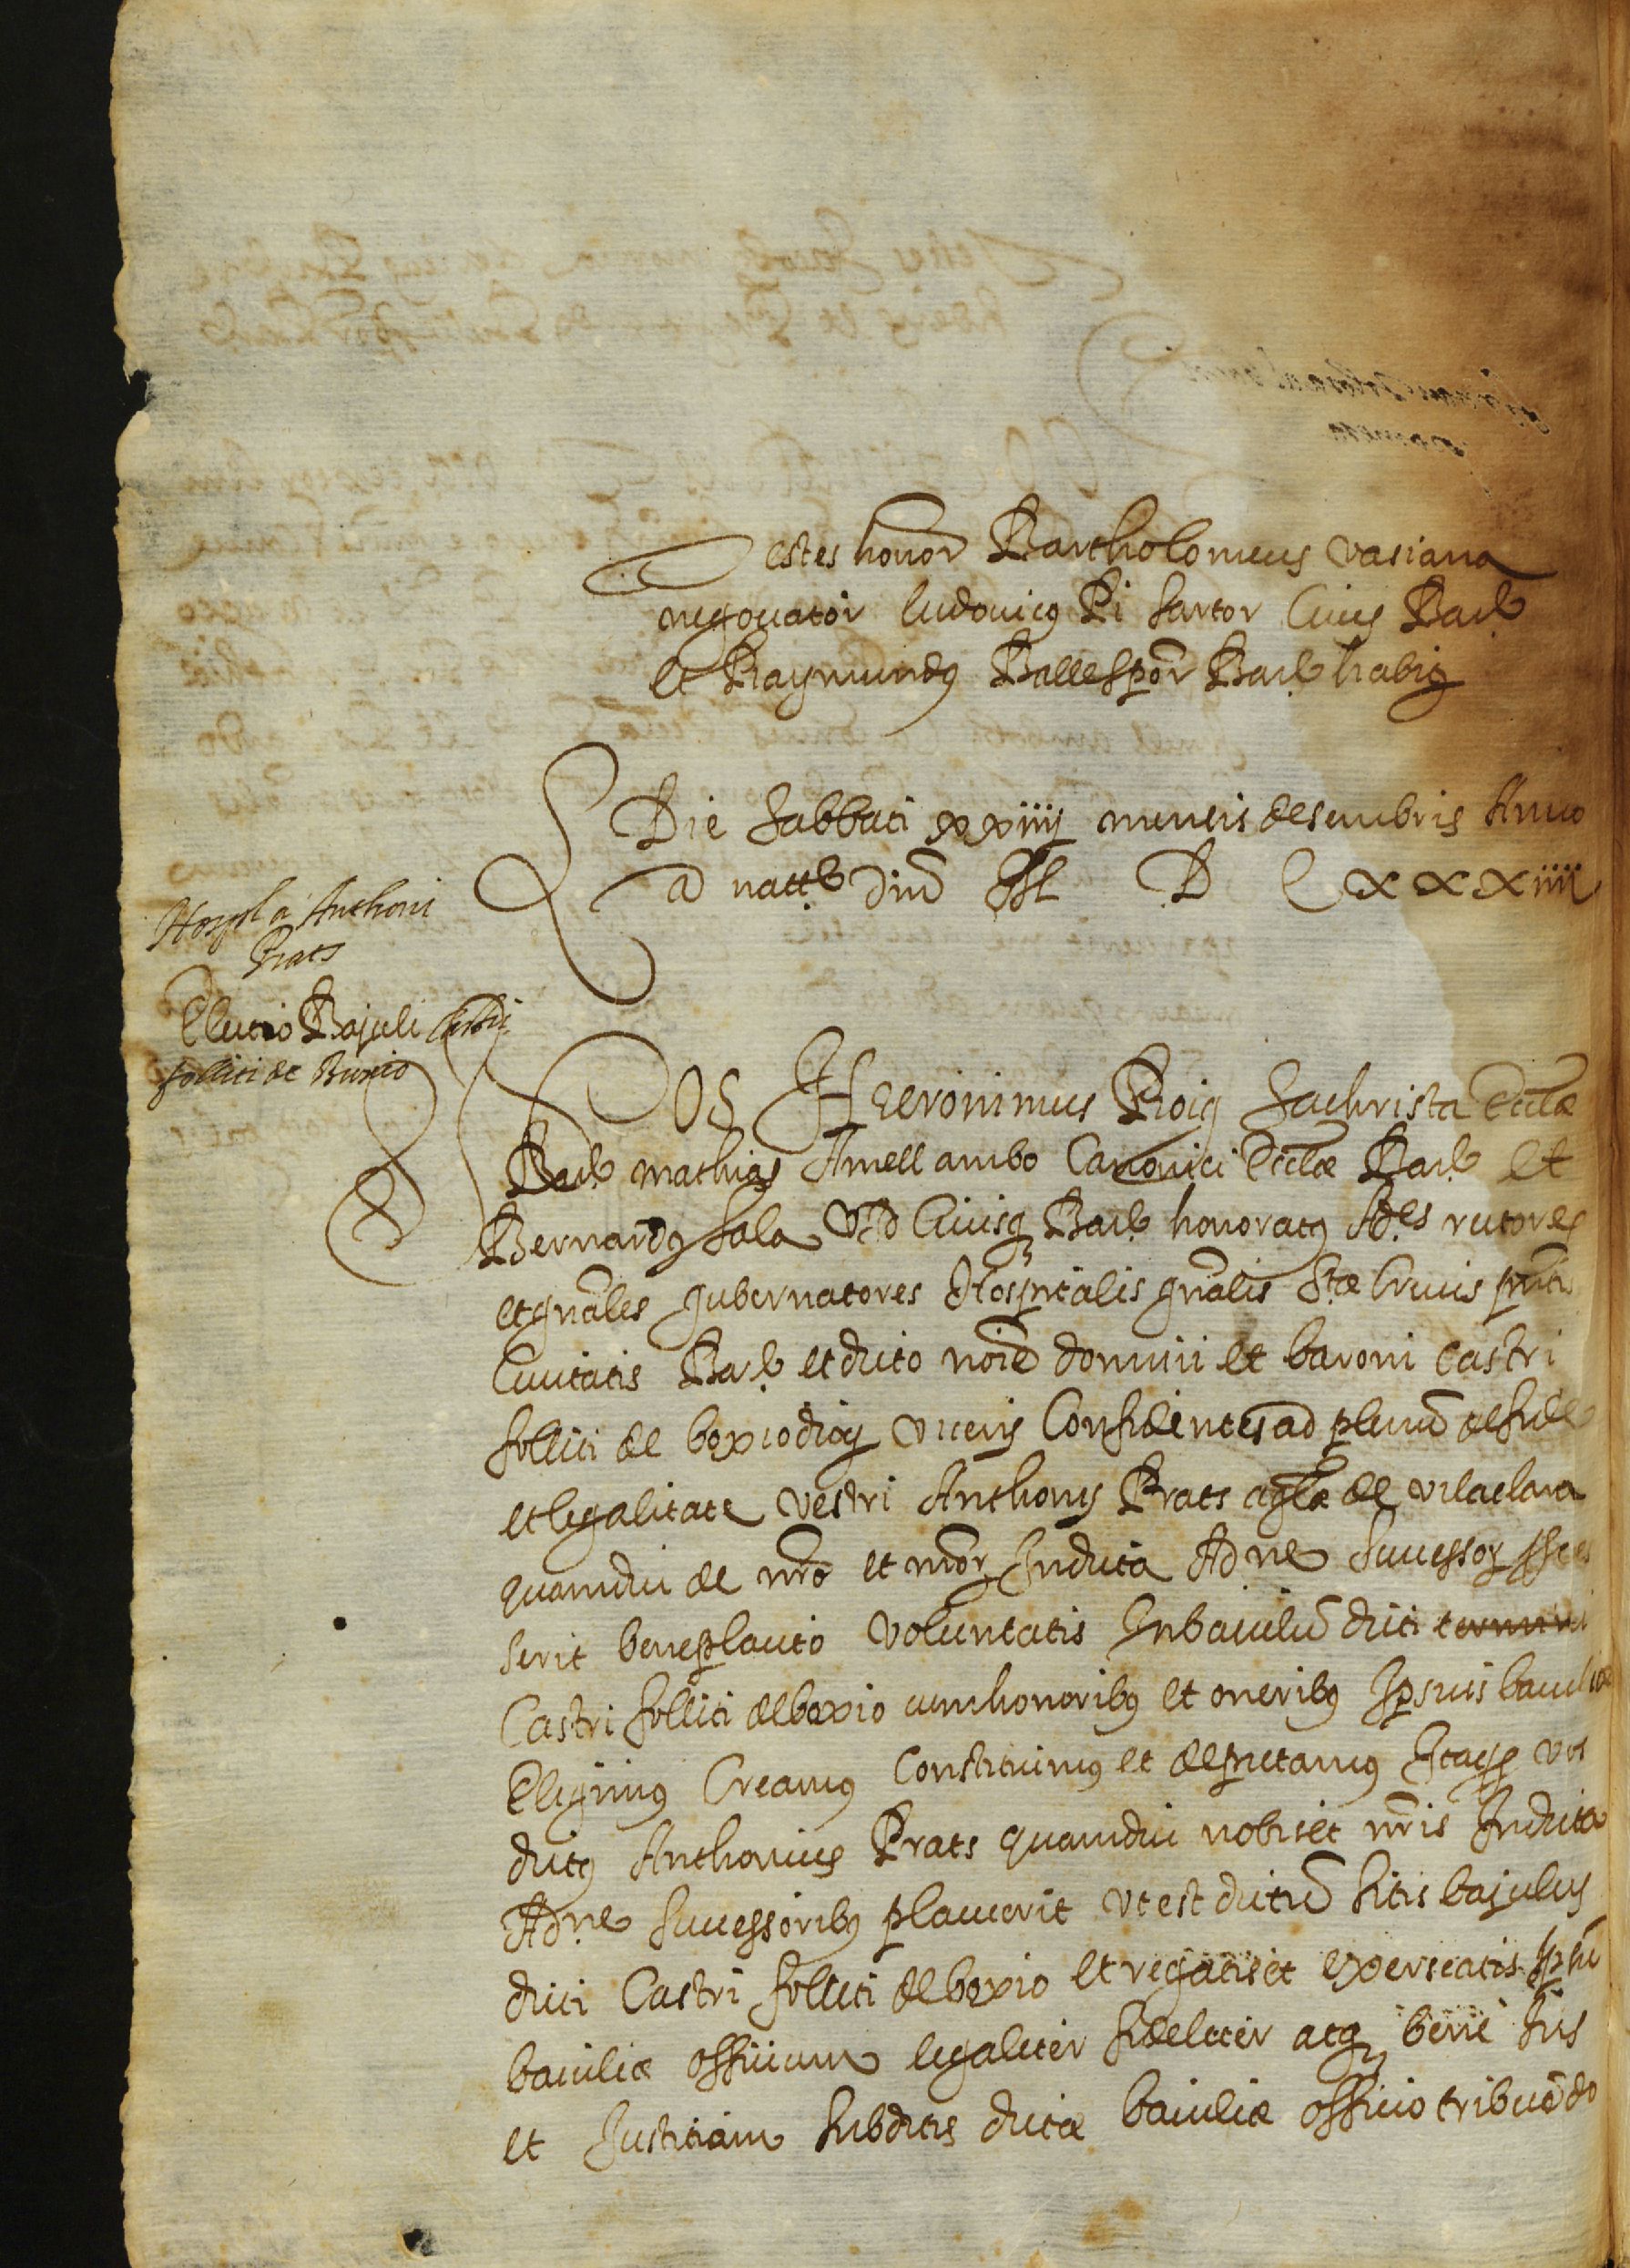 Testes honor Bartholomeus vasiana
negotiator Ludovicus Pi sartor Cives Bar
et Raymundus Ballespor Bar habig
Die Sabbati xxiiij mensis desembris Anno
a natt dnĩ M D LxxxxiiiJ
Hospl a Anthoni
Prats
Electio Bajuli Castri
folliti de Buxio
NOS Hieronimus Roig Sachrista Eccłæ
Bar mathias Amell ambo Canonici Eccłæ Bar et
Bernardus Sala VJD Civisq Bar honoratus Ad.es rectores
et gnãles gubernatores Hospitalis gnãlis Stæ Crucis pñtis
Civitatis Bar et dicto noĩe domini et baroni castri
folliti de boxio dioc vicens Confidentes ad plenũ de fide
et legalitate vestri Anthonij Prats aglæ de vilaclara
quamdiu de nrõ et nrõr Indicta Adne Successor
serit beneplacito voluntatis In baiulũ dicti
Castri folliti de boxio cum honoribus et oneribus Ipsius baiuliæ
Eligimus Creamus Constituimus et deputamus Itaqꝫ vos
dictus Anthonius Prats quamdiu nobis et nrĩs Indicta
Adne Successoribus placuerit ut est dictũ sitis bajulus
dicti Castri folliti de boxio et regatis et exerseatis Ipsũ
baiuliæ officium legaliter fideliter atq bene Jus
et Justitiam Subditis dictæ baiuliæ officio tribuẽdo